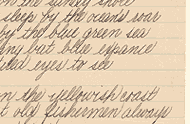 on the sandy shore
sleep by the oceans roar
by the blue green sea
any but blue expanse
eyes to see
on the yellowish coast
old fishermen always